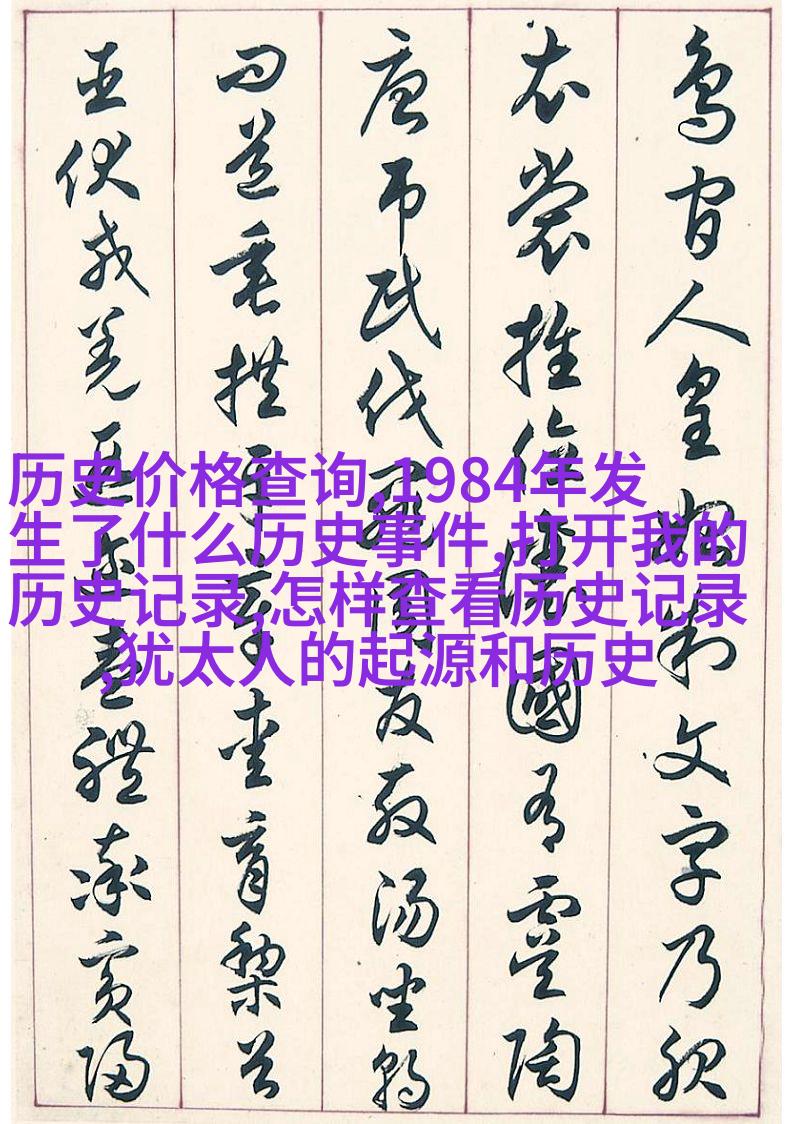 鳥官人皇始制文字乃服
衣裳推位讓國有虞陶
唐吊民伐罪周發殷湯坐朝
問道垂拱平章愛育黎首
臣伏戎羌遐邇壹體率賓歸
历史价格查询,1984年发
生了什么历史事件,打开我的
历史记录,怎样查看历史记录
,犹太人的起源和历史